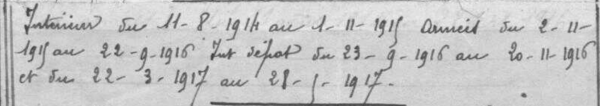 Intérieur du 11-8-1914 au 1-11-1915 Armées du 2-11-
1915 au 22-9-1916 Int dépot du 23-9-1916 au 20-11-1916
et du 22-3-1917 au 28-5-1917.